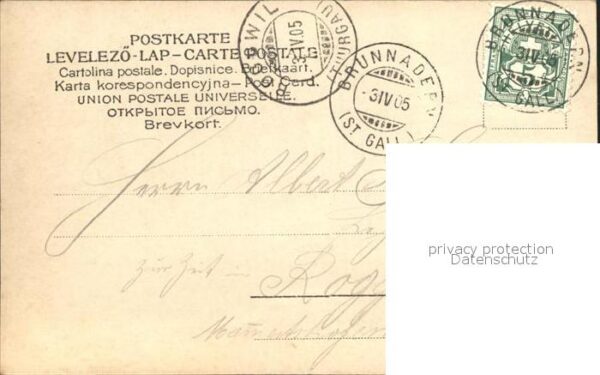 POSTKARTE
LEVELEZŐ-LAP-CARTE POSTALE
Cartolina postale. Dopisnice. Brefkaart.
Karta korespondencyjna-Post Card.
UNION POSTALE UNIVERSELLE.
ОТКРЫТОЕ ПИСЬМО.
Brevkort.
ROGGWIL
3 IV 05
(THURGAU)
BRUNNADERN
-3 IV 05
(ST GALL)
BRUNNADERN
HELVETIA
-3 IV 05
GALL)
Herrn Albert
zur Zeit in Rogg
privacy protection
Datenschutz